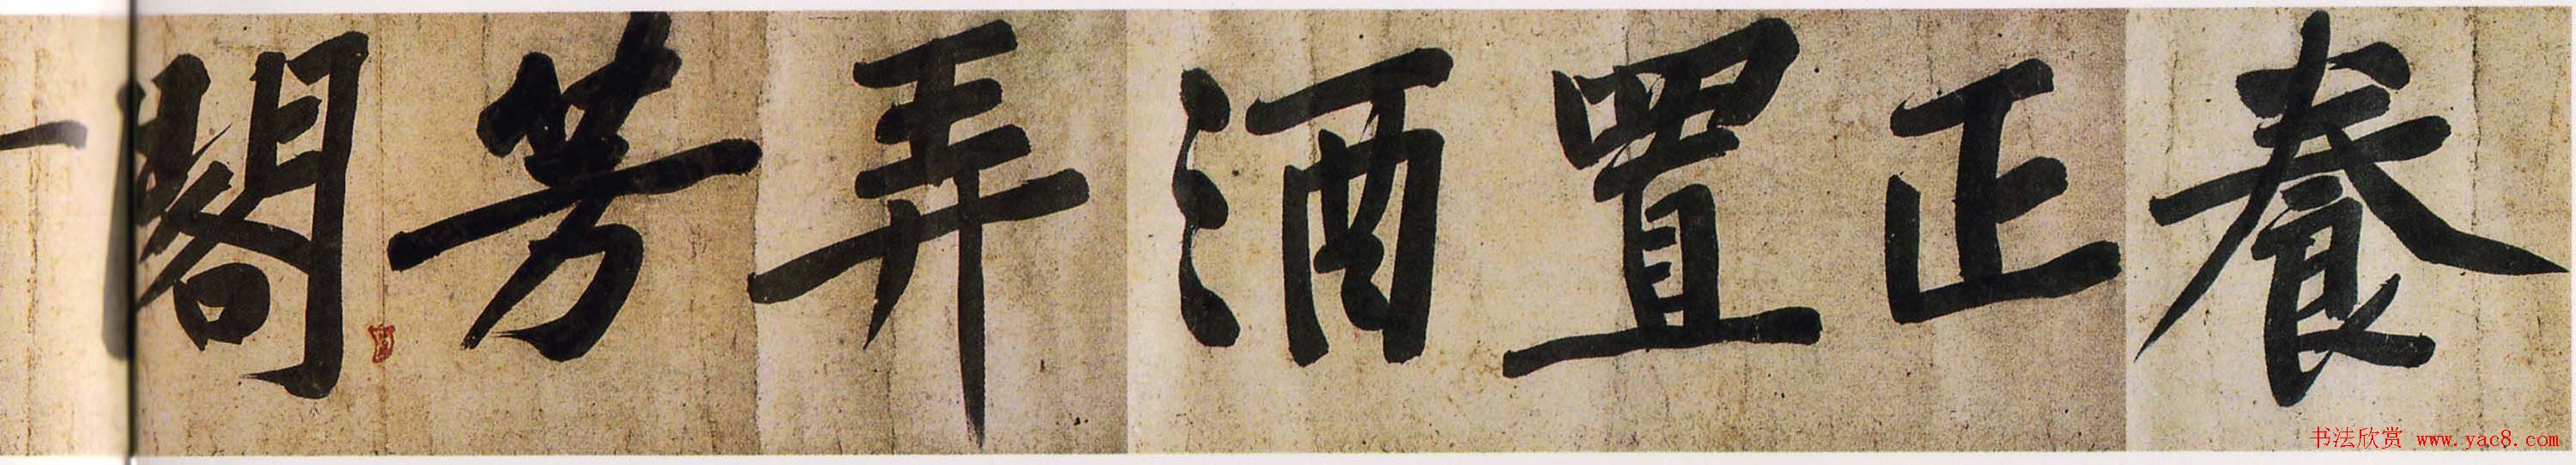 養正置酒弄芳閣一
书法欣赏 www.yac8.com